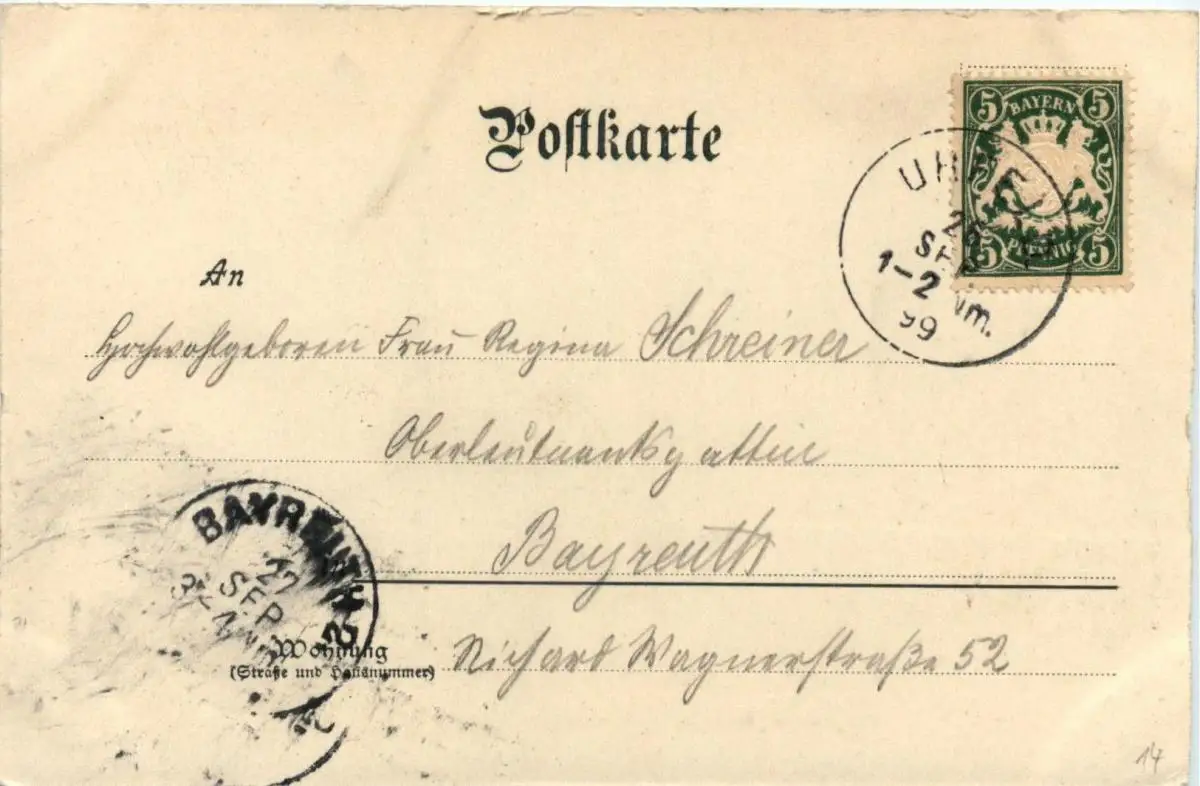 Postkarte
5 BAYERN 5
5 PFENNIG 5
26
SEP.
1-2 Nm.
99
An
Hochwohlgeboren Frau Regina Schreiner
Oberleutnantsgattin
Bayreuth
BAYREUTH 2
27
SEP
Wohnung
(Straße und Hausnummer)
Richard Wagnerstraße 52
14